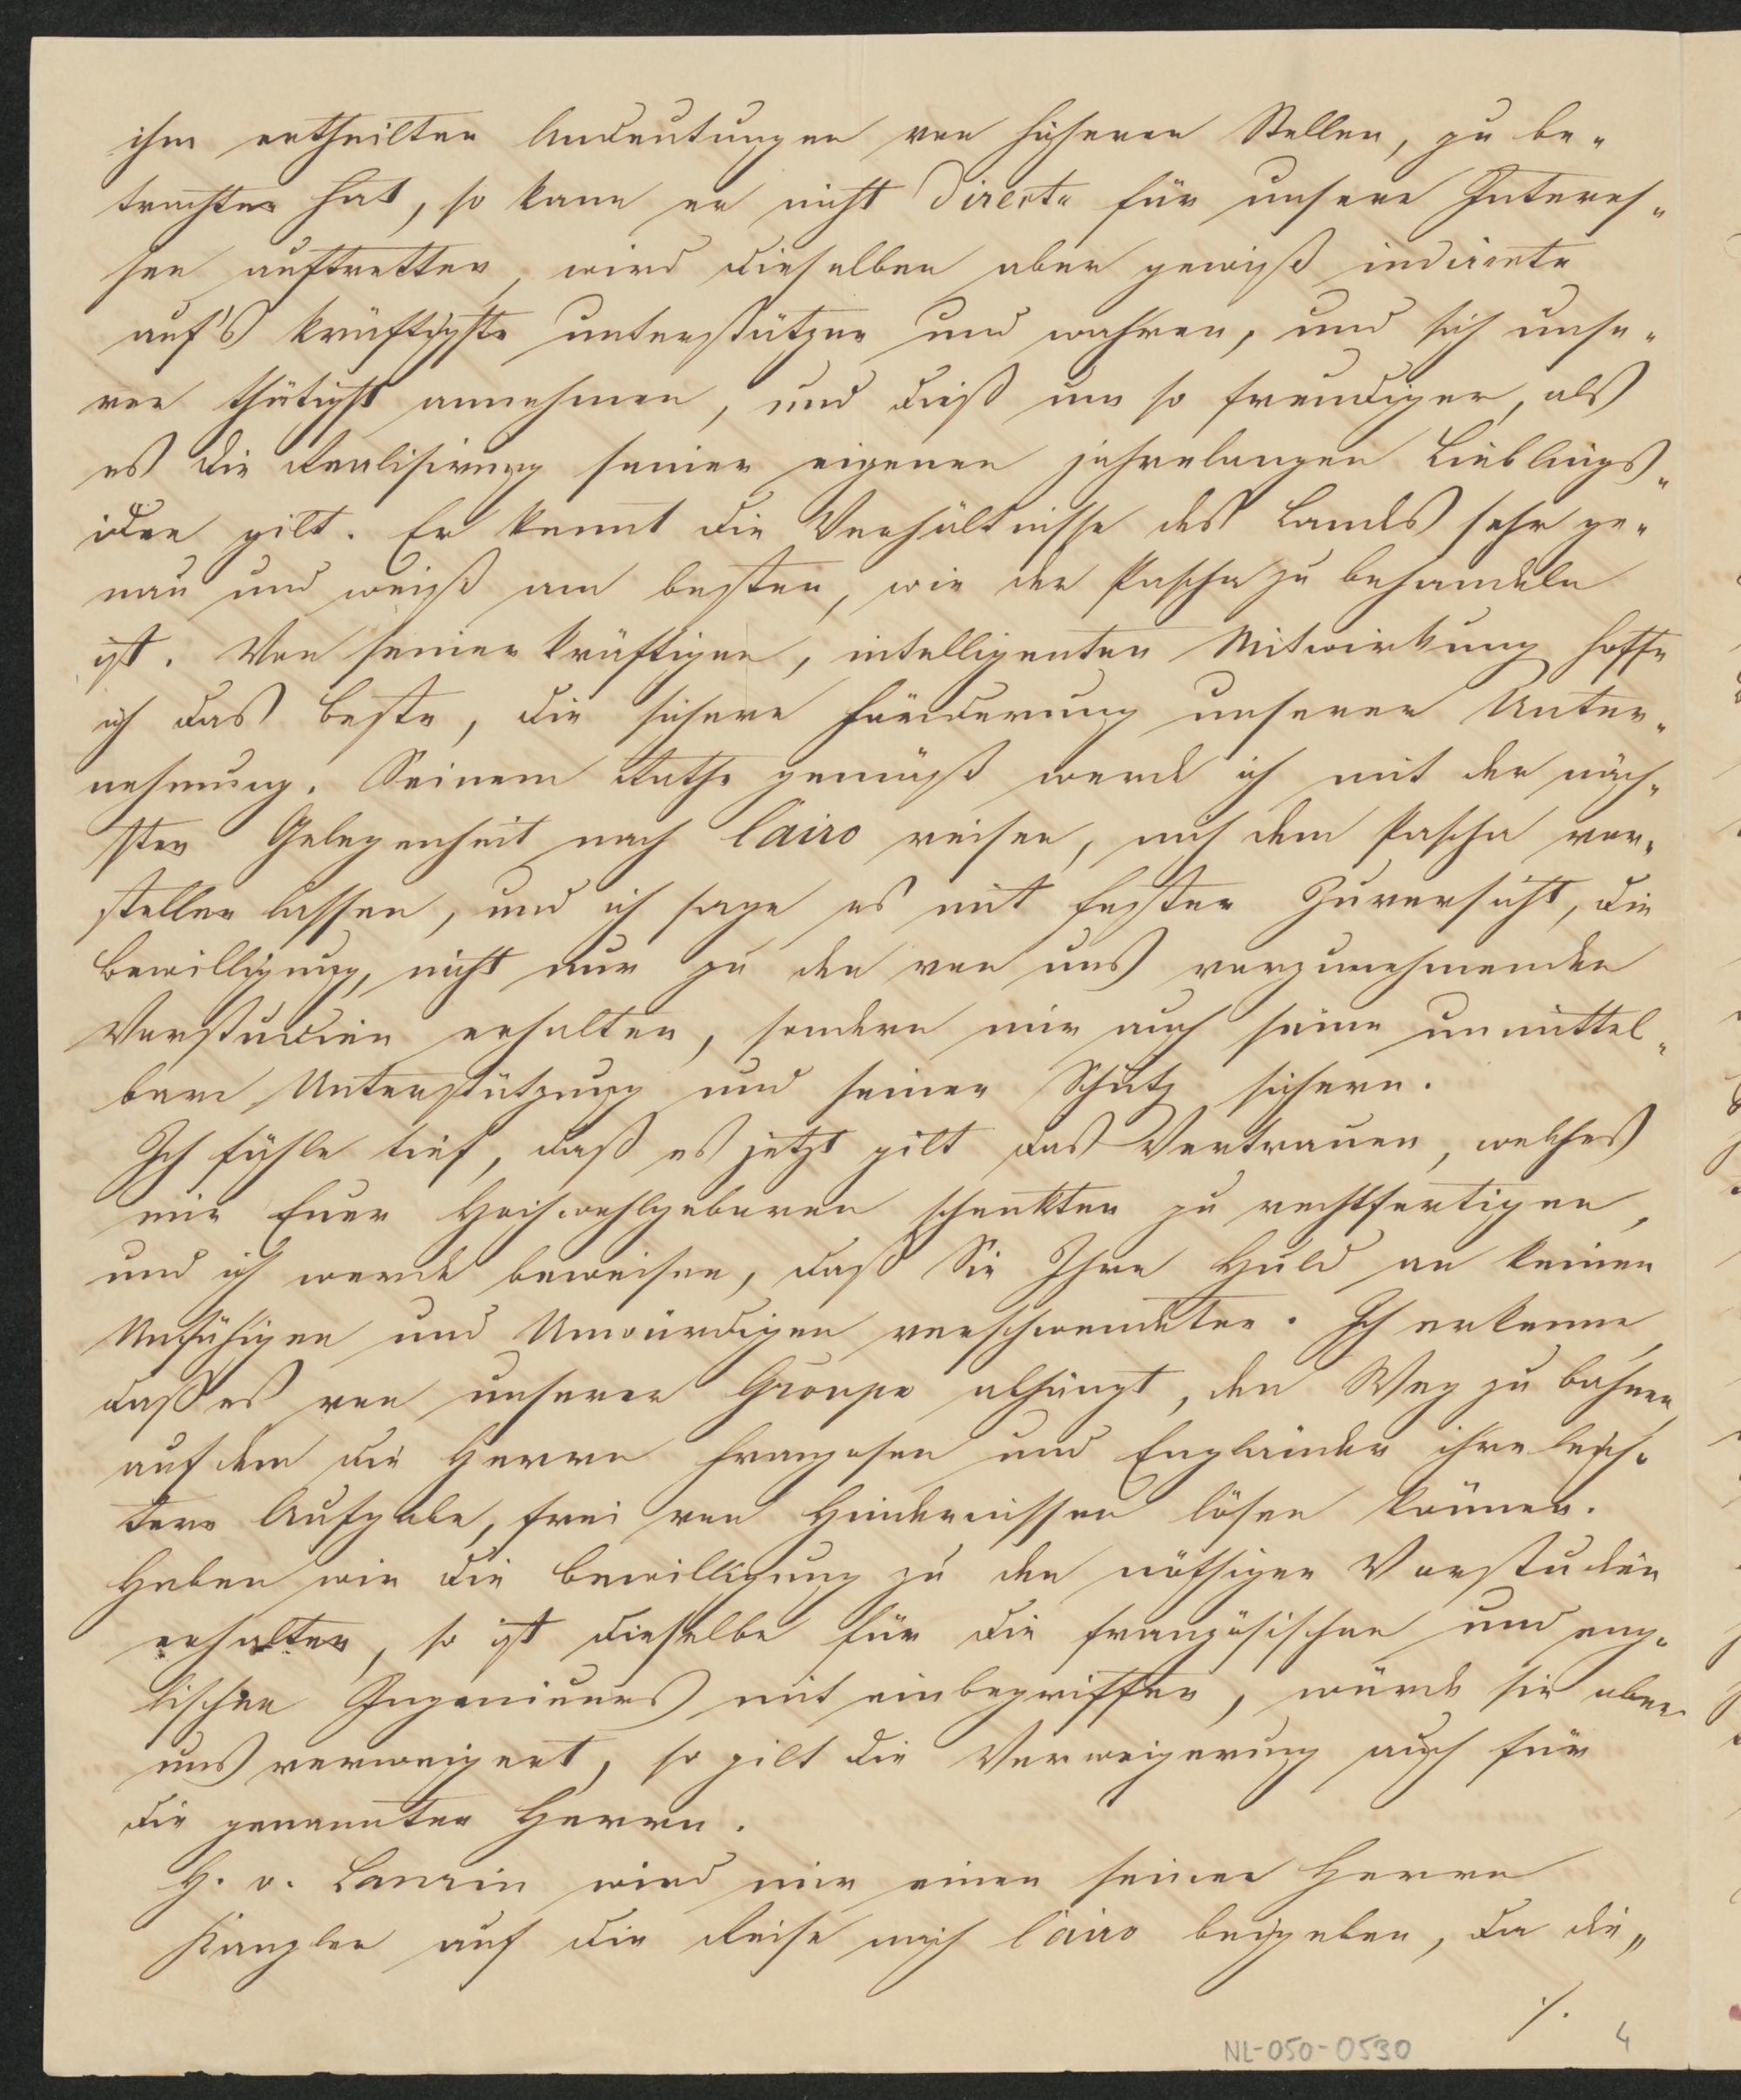 ihm ertheilten Andeutungen von höheren Stellen, zu be-
trachten hat, so kann er nicht directe für unsere Interes-
sen auftretten, wird dieselben aber gewiß indirecte
auf's kräftigste unterstützen und wahren, und sich unse-
rer thätigst annehmen, und dieß um so freudiger, als
es die Realisirung seiner eigenen jahrelangen Lieblings-
idee gilt. Er kennt die Verhältnisse des Landes sehr ge-
nau und weiß am besten, wie der Pascha zu behandeln
ist. Von seiner kräftigen, intelligenten Mitwirkung hoffe
ich das beste, die sichere Förderung unserer Unter-
nehmung. Seinem Rathe gemäß werde ich mit der näch-
sten Gelegenheit nach Cairo reisen, mich dem Pascha vor-
stellen lassen, und ich sage es mit fester Zuversicht, die
Bewilligung, nicht nur zu den von uns vorzunehmenden
Vorstudien erhalten, sondern mir auch seine unmittel-
bare Unterstützung und seinen Schutz sichern.
Ich fühle tief, daß es jetzt gilt das Vertrauen, welches
mir Euer Hochwohlgeboren schenkten zu rechtfertigen,
und ich werde beweisen, daß Sie Ihre Huld an keinen
Unfähigen und Unwürdigen verschwendeten. Ich erkenne,
daß es von unserer Groupe abhängt, den Weg zu bahnen,
auf dem die Herren Franzosen und Engländer ihre leich-
tere Aufgabe, frei von Hindernissen lösen können.
Haben wir die Bewilligung zu den nöthigen Vorstudien
erhalten, so ist dieselbe für die französischen und eng-
lischen Ingenieurs mit einbegriffen, würde sie aber
uns verweigert, so gilt die Verweigerung auch für
die genannten Herren.
H. v. Laurin wird mir einen seiner Herren
Kanzler auf die Reise nach Cairo beigeben, da die„
./.
NL-050-0530 4